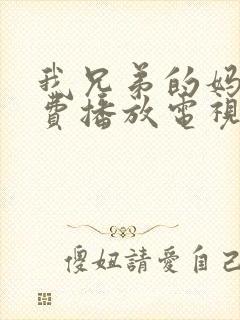 我兄弟的妈
費播放電視
傻妞請愛自己